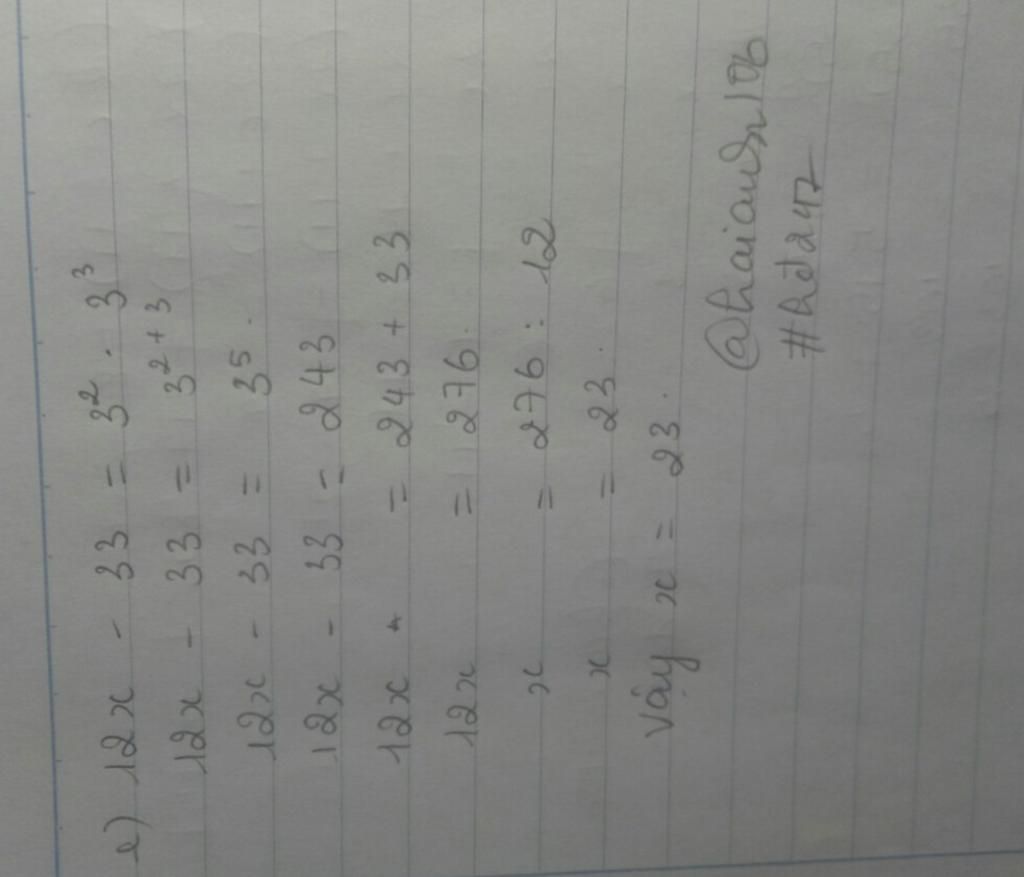 e) 12x - 33 = 3² . 3³
12x - 33 = 3²⁺³
12x - 33 = 3⁵.
12x - 33 = 243
12x = 243 + 33
12x = 276.
x = 276 : 12
x = 23.
Vậy x = 23.
#hđ247